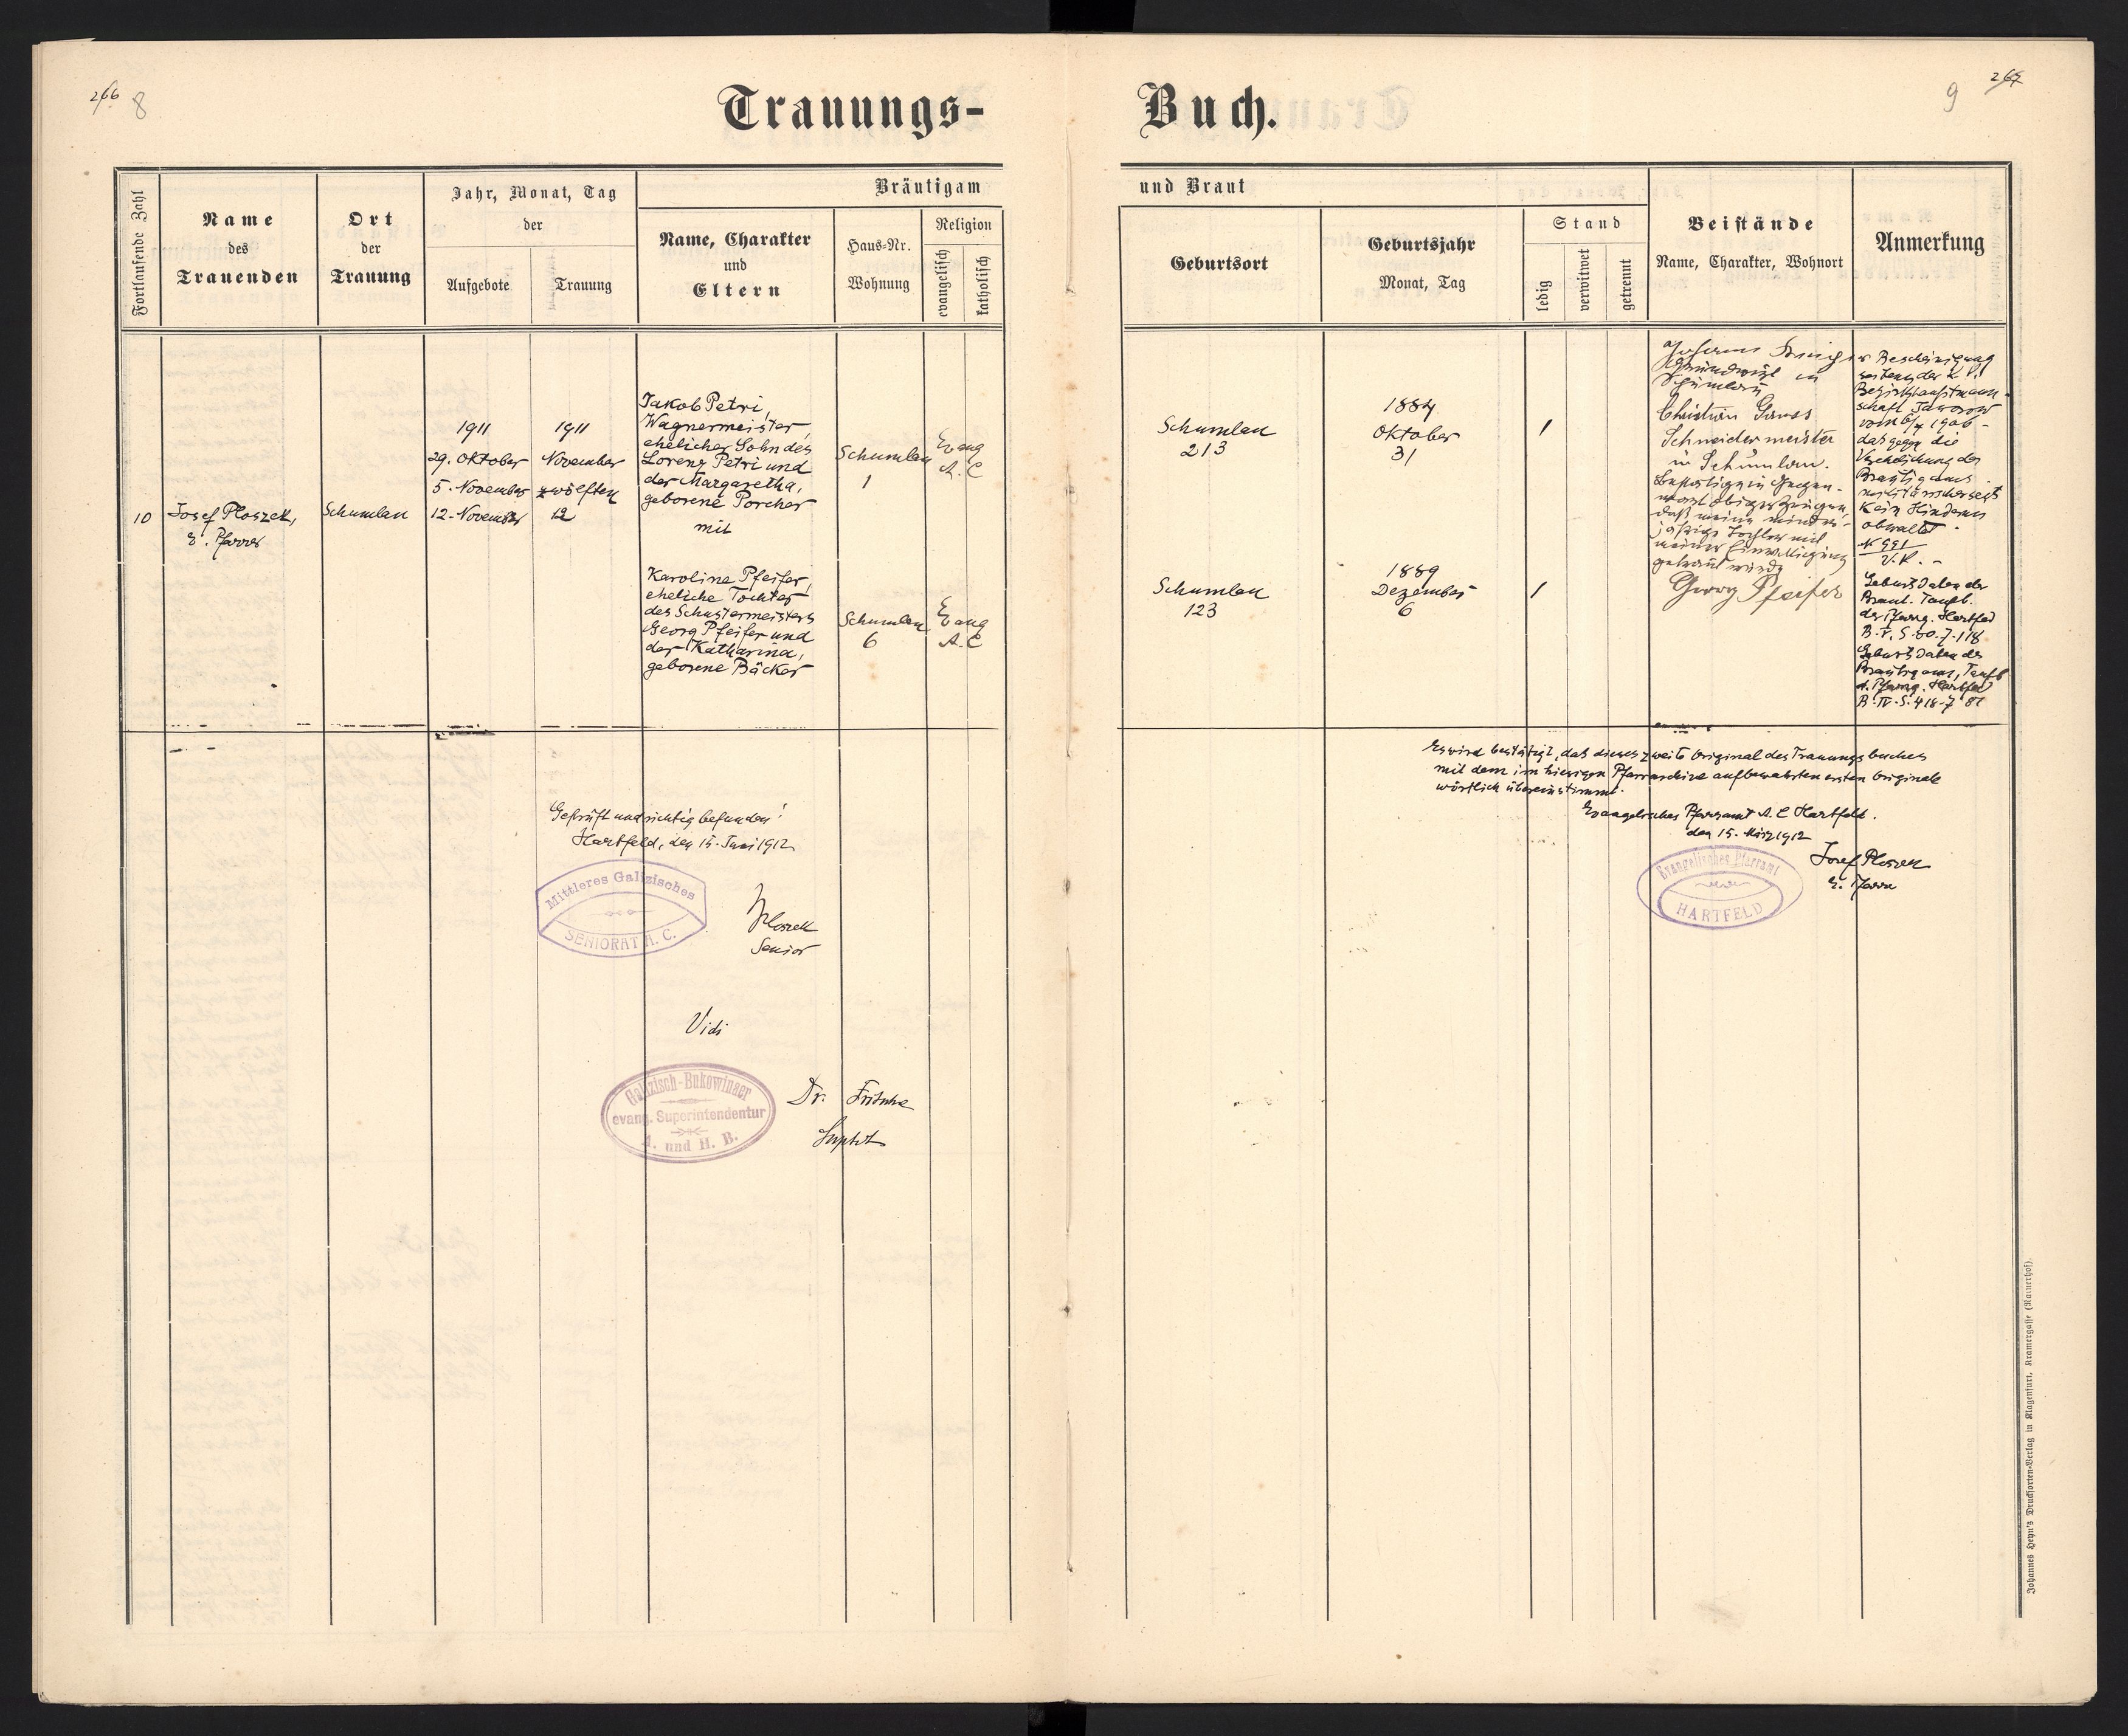 266 8
Trauungs-
Fortlaufende Zahl
Name
des
Trauenden
Ort
der
Trauung
Jahr, Monat, Tag
der
Aufgebote
Trauung
Bräutigam
Name, Charakter
und
Eltern
Haus-Nr.
Wohnung
Religion
evangelisch
katholisch
10
Josef Ploszek,
E. Pfarrer
Schumlau
1911
29. Oktober
5. November
12. November
1911
November
zwölften
12
Jakob Petri,
Wagnermeister,
ehelicher Sohn des
Lorenz Petri und
der Margaretha,
geborene Porcher
mit
Schumlau
1
Evang
A. C
Karoline Pfeifer,
eheliche Tochter
des Schustermeisters
Georg Pfeifer und
der Katharina,
geborene Bäcker
Schumlau
6
Evang
A. C
Geprüft und richtig befunden!
Hartfeld, den 15. Juni 1912
Mittleres Galizisches
SENIORAT A. C.
Ploszek
Senior
Vidi
Galizisch-Bukowinaer
evang. Superintendentur
A. und H. B.
Dr. Fritsche
Supdt
9 267
Buch.
und Braut
Geburtsort
Geburtsjahr
Monat, Tag
Stand
ledig
verwitwet
getrennt
Beistände
Name, Charakter, Wohnort
Anmerkung
Schumlau
213
1884
Oktober
31
1
Schumlau
123
1889
Dezember
6
1
Grundwirt in
Schumlau
Christian
Schneidermeister
in Schumlau.
Bestätige in Gegen-
wart obiger Zeugen,
daß meine minder-
jährige Tochter mit
meiner Einwilligung
getraut wurde
Georg Pfeifer
Bescheinigung
seitens der k. k.
Bezirkshauptmann-
schaft Jaworow
vom 1906 -
das gegen die
Verehelichung des
Bräutigams
militärischerseits
kein Hindernis
obwaltet.
N 991
V. K. -
Geburtsdaten der
Braut. Taufb.
der Pfarrg. Hartfeld
B. V. S. 60. 7. 118
Geburtsdaten des
Bräutigams, Taufb
d. Pfarrg. Hartfeld
B. IV. S. 418. 7. 81
Es wird bestätigt, daß dieses zweite Original des Trauungsbuches
mit dem im hiesigen Pfarrarchive aufbewahrten ersten Originale
wörtlich übereinstimmt.
Evangelisches Pfarramt A. C Hartfeld.
den 15. März 1912
Evangelisches Pfarramt
HARTFELD
Josef Ploszek
E. Pfarrer
Johannes Heyn's Drucksorten-Verlag in Klagenfurt, Kramergasse (Rainerhof).